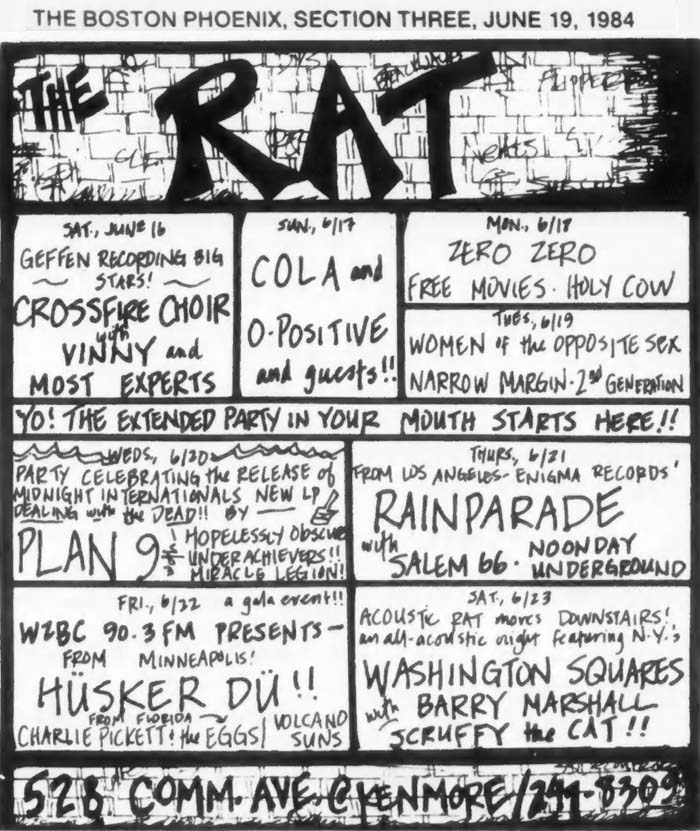 THE BOSTON PHOENIX, SECTION THREE, JUNE 19, 1984
THE RAT
SAT., JUNE 16
GEFFEN RECORDING BIG
STARS!
CROSSFIRE CHOIR
with
VINNY and
MOST EXPERTS
SUN., 6/17
COLA and
O-POSITIVE
and guests!!
MON., 6/18
ZERO ZERO
FREE MOVIES · HOLY COW
TUES., 6/19
WOMEN of the OPPOSITE SEX
NARROW MARGIN · 2nd GENERATION
YO! THE EXTENDED PARTY IN YOUR MOUTH STARTS HERE!!
WEDS., 6/20
PARTY CELEBRATING the RELEASE of
MIDNIGHT INTERNATIONALS NEW LP
DEALING with the DEAD!! BY
PLAN 9
HOPELESSLY OBSCURE
UNDERACHIEVERS!!
MIRACLE LEGION!
THURS., 6/21
FROM LOS ANGELES - ENIGMA RECORDS'
RAINPARADE
with SALEM 66 · NOONDAY UNDERGROUND
FRI., 6/22 a gala event!!
WZBC 90.3 FM PRESENTS—
FROM MINNEAPOLIS!
HÜSKER DÜ!!
FROM FLORIDA
CHARLIE PICKETT! the EGGS / VOLCANO SUNS
SAT., 6/23
ACOUSTIC RAT moves DOWNSTAIRS!
an all-acoustic night featuring N.Y.'s
WASHINGTON SQUARES
with BARRY MARSHALL
SCRUFFY the CAT!!
528 COMM. AVE. @ KENMORE / 247-8309